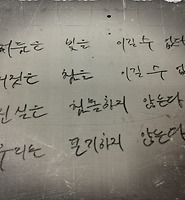 어둠은 빛을 이길 수 없다
거짓은 참을 이길 수 없다
진실은 침몰하지 않는다
우리는 포기하지 않는다